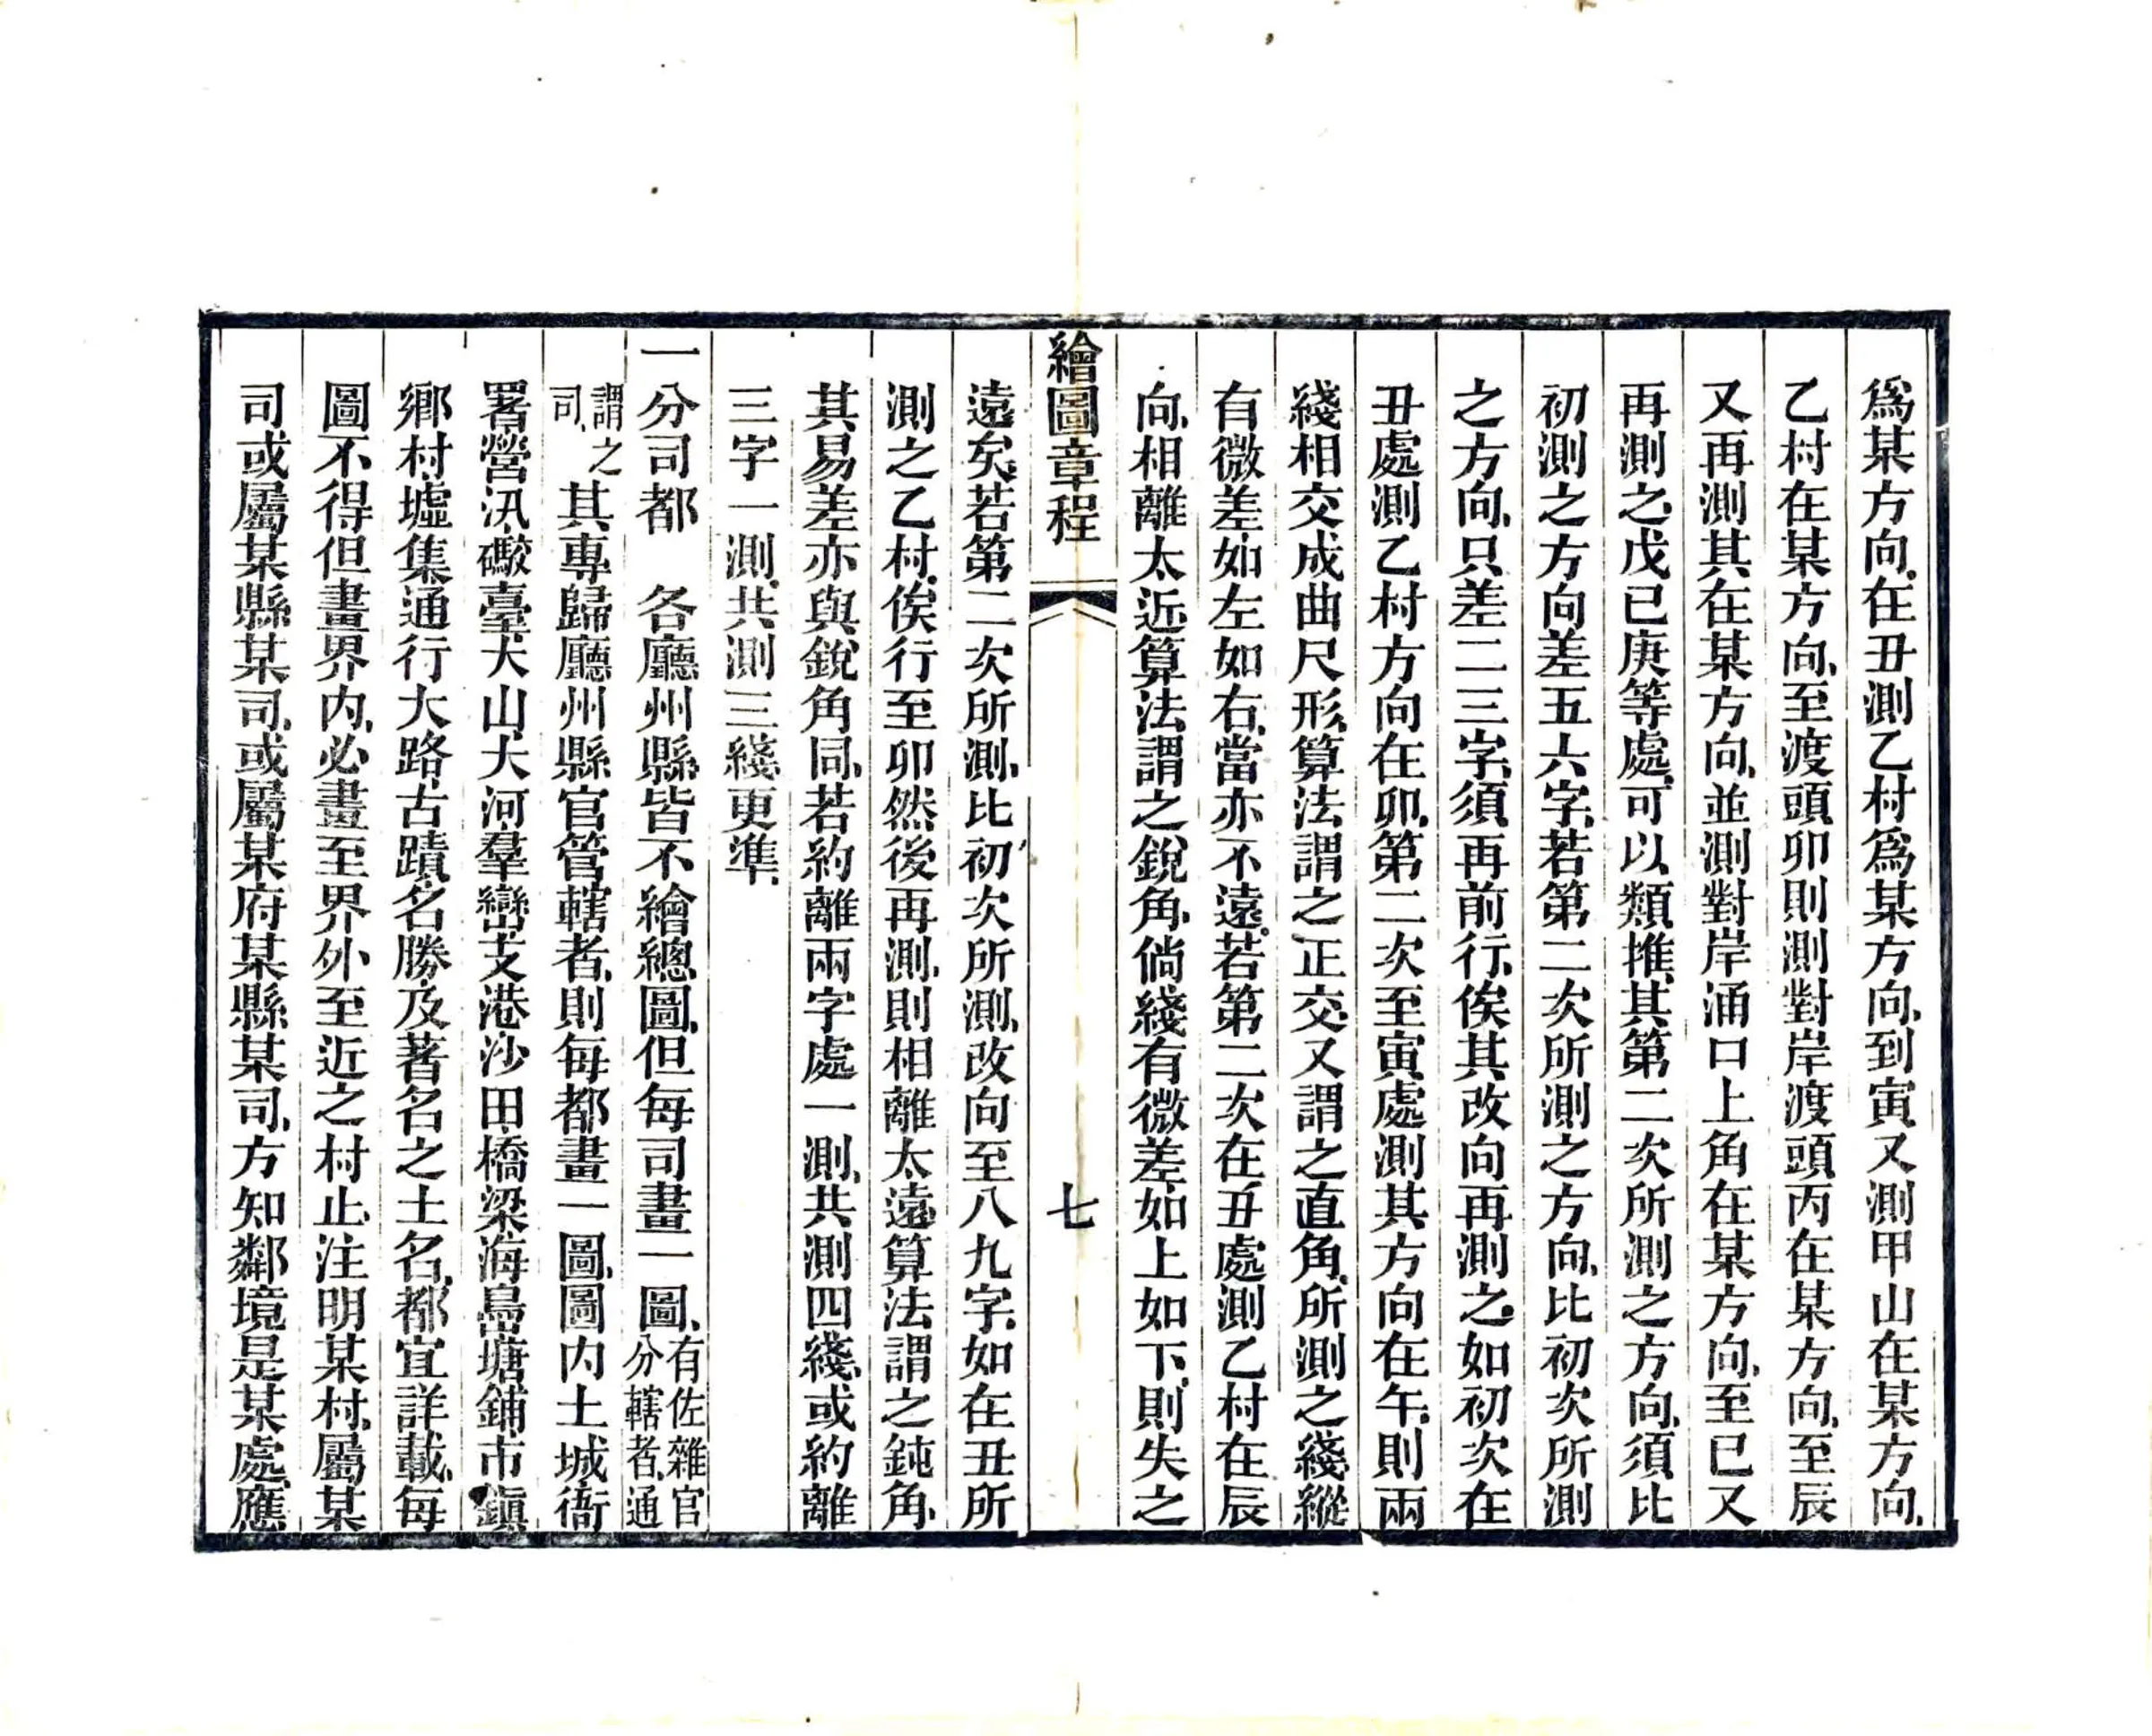 爲某方向、在丑測乙村爲某方向、到寅又測甲山在某方向、
乙村在某方向、至渡頭卯則測對岸渡頭丙在某方向、至辰
又再測其在某方向、並測對岸涌口上角在某方向、至巳又
再測之、戊己庚等處、可以類推、其第二次所測之方向、須比
初測之方向差五六字、若第二次所測之方向、比初次所測
之方向、只差二三字、須再前行、俟其改向再測之、如初次在
丑處測乙村方向在卯、第二次至寅處測其方向在午、則兩
綫相交成曲尺形、算法謂之正交、又謂之直角、所測之綫縱
有微差、如左如右、當亦不遠、若第二次在丑處測乙村在辰
向、相離太近、算法謂之銳角、倘綫有微差、如上如下、則失之
繪圖章程 七
遠矣、若第二次所測、比初次所測、改向至八九字、如在丑所
測之乙村、俟行至卯然後再測、則相離太遠、算法謂之鈍角、
其易差亦與銳角同、若約離兩字處一測、共測四綫、或約離
三字一測、共測三綫、更準、
一分司都　各廳州縣、皆不繪總圖、但每司畫一圖、有佐雜官分轄者、通
謂之司、其專歸廳州縣官管轄者、則每都畫一圖、圖內土城衙
署、營汛、礮臺、大山、大河、羣巒、支港、沙田、橋梁、海島、塘鋪、市鎮、
鄉村、墟集、通行大路、古蹟、名勝、及著名之土名、都宜詳載、每
圖不得但畫界內、必畫至界外至近之村止、注明某村、屬某
司、或屬某縣某司、或屬某府某縣某司、方知鄰境是某處、應